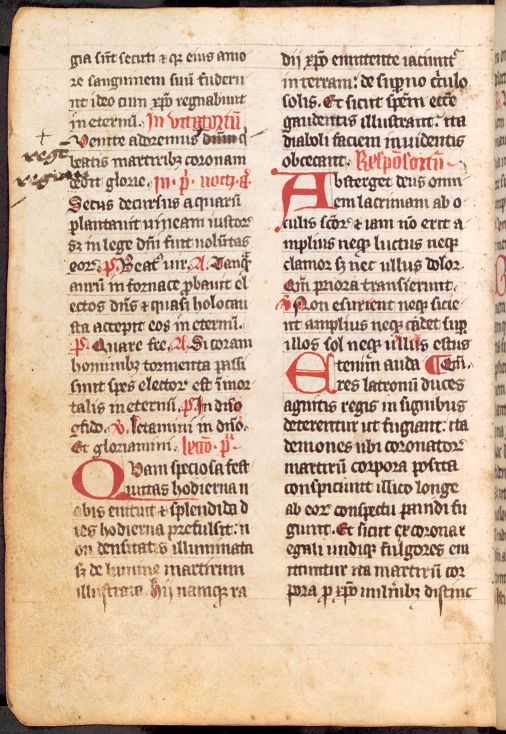 gia sūt secuti ⁊ qꝛ eius amo
re sanguinem suū fuderū
nt ideo cum xp̄o regnabunt
in eternū. In vitatoriū
Venite adoremus dn̄m q̇
beatis martiribꝫ coronam
dedit glorie. In p̄. noct̄. a.
Secus decursus aquarū
plantauit uineam iustoꝝ
sꝫ in lege dn̄i fuit uolūtas
eoꝝ. p̄. Beat᷒ uir. A. Tanqͣ̄
aurū in fornace ꝓbauit el
ectos dn̄s ⁊ quasi holocau
sta accepit eos in eternū.
p̄. Quare fre. A. Si coram
hominibꝫ tormenta passi
sunt spes electoꝝ est īmor
talis in eternū. p̄. In dn̄o
ꝯfido. v. Letamini in dn̄o.
Et gloriamini. lectō. p̄ͣ
Quam speciosa fest
iuitas hodierna n
obis enituit ⁊ splendida d
ies hodierna prefulsit: n
on densitatis illuminata
sꝫ de lumine martirum
illustrata. Hij namqꝫ ra
dij xp̄o emittente iaciunt᷒
in terram: de suꝑno circulo
solis. Et sicut speīn ecc̄e
gaudentis illustrant: ita
diaboli faciem inuidentis
obcecant. Responsoriū
Absterget deus omn
em lacrimam ab o
culis sc̄oꝝ ⁊ iam nō erit a
mplius neqꝫ luctus neqꝫ
clamor sꝫ nec ullus dolor.
Qm̄ priora transierunt.
v. Non esurient neqꝫ sicie
nt amplius neqꝫ cadet suꝑ
illos sol neqꝫ ullus estus
Etenim̄ auda Qm̄.
res latronū duces
agnitis regis in signibus
deterentur ut fugiant: ita
demones ubi coronatoꝝ
martirū corpora posita
conspiciunt illico longe
ab eoꝝ conspectu pauidi fu
giunt. Et sicut ex corona r
egali undiqꝫ fulgores em
ittuntur ita martirū cor
pora ꝑ xp̄o uulnibꝫ distinc